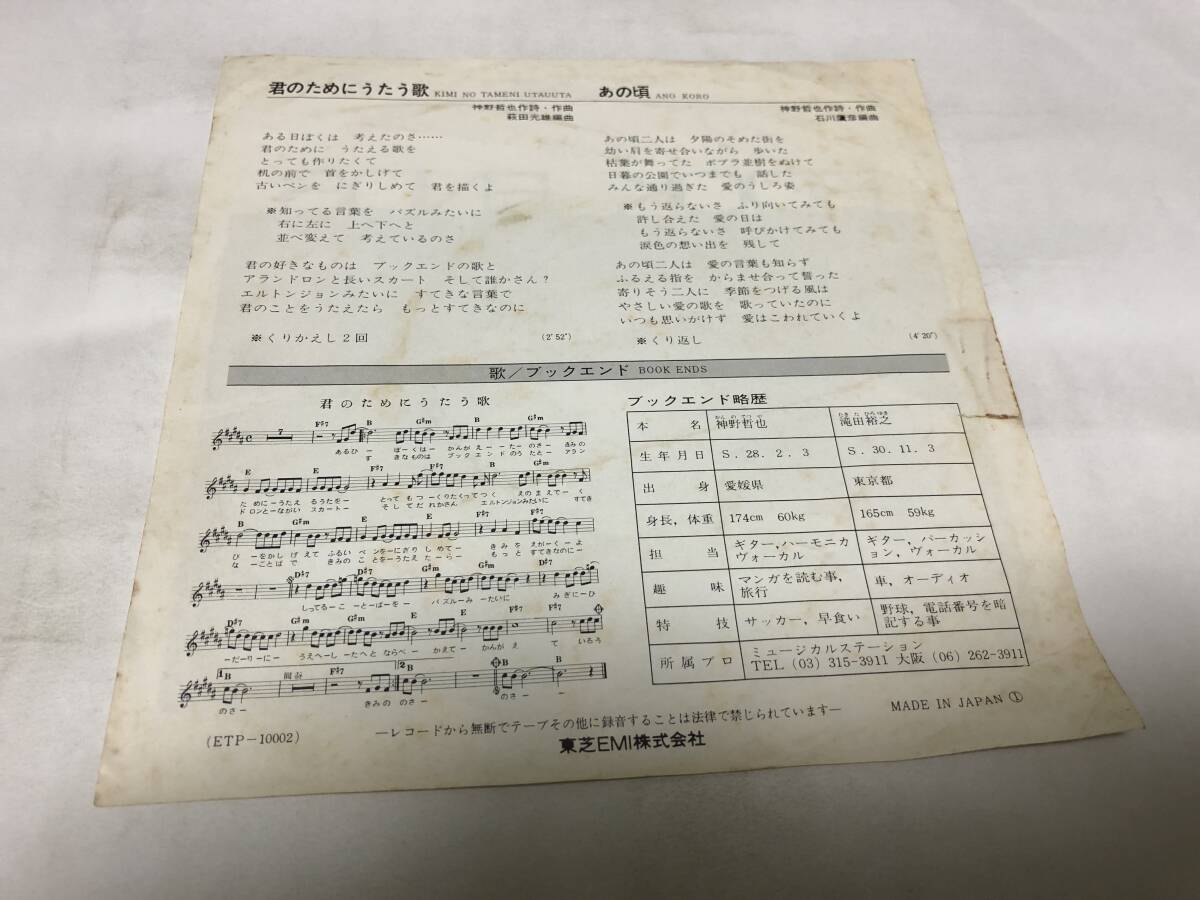 君のためにうたう歌 KIMI NO TAMENI UTAUUTA
神野哲也作詩・作曲
萩田光雄編曲
ある日ぼくは 考えたのさ……
君のために うたえる歌を
とっても作りたくて
机の前で 首をかしげて
古いペンを にぎりしめて 君を描くよ
※知ってる言葉を パズルみたいに
右に左に 上へ下へと
並べ変えて 考えているのさ
君の好きなものは ブックエンドの歌と
アランドロンと長いスカート そして誰かさん?
エルトンジョンみたいに すてきな言葉で
君のことをうたえたら もっとすてきなのに
※くりかえし2回 (2'52")
あの頃 ANO KORO
神野哲也作詩・作曲
石川鷹彦編曲
あの頃二人は 夕陽のそめた街を
幼い肩を寄せ合いながら 歩いた
枯葉が舞ってた ポプラ並樹をぬけて
日暮の公園でいつまでも 話した
みんな通り過ぎた 愛のうしろ姿
※もう返らないさ ふり向いてみても
許し合えた 愛の日は
もう返らないさ 呼びかけてみても
涙色の想い出を 残して
あの頃二人は 愛の言葉も知らず
ふるえる指を からませ合って誓った
寄りそう二人に 季節をつげる風は
やさしい愛の歌を 歌っていたのに
いつも思いがけず 愛はこわれていくよ
※くり返し (4'20")
歌/ブックエンド BOOK ENDS
君のためにうたう歌
7 F♯7 B G♯m
あるひー ぼーくはー かんがえーーたーのさー きみの
すきなものは ブックエンドのうたとー アラン
E E F♯7 B F♯7
ためにーうたえ るうたをー とっても つーくりたくってつく えのまえでーく
ドロンとーながい スカートー そしてだれかさん エルトンジョンみたいに すてき
B G♯m E E F♯7
びーをかしげえて ふるい ペンをーにぎりしめてー きみを えがーくーよ
なーことばで きみの ことをーうたえ たーらー もっと すてきなのにー
D♯7 G♯m D♯7 G♯m
しってるーこーとーばーを− パズルーみーたいに みぎにーひ
D♯7 G♯m E F♯7 E F♯7
ーだーりーにー うえへーしーたへと ならべー かえてー かんがえ て いるろう
1 B 間奏 F♯7 2 B B B
のさー きみの のさー のさー
(ETP-10002)
ブックエンド略歴
本名 神野哲也 かんのてつや 滝田裕之 たきたひろゆき
生年月日 S.28.2.3 S.30.11.3
出身 愛媛県 東京都
身長,体重 174cm 60kg 165cm 59kg
担当 ギター,ハーモニカ ギター, パーカッシ
ヴォーカル ョン, ヴォーカル
趣味 マンガを読む事, 車, オーディオ
旅行
特技 サッカー, 早食い 野球, 電話番号を暗
記する事
所属プロ ミュージカルステーション
TEL (03) 315-3911 大阪 (06) 262-3911
―レコードから無断でテープその他に録音することは法律で禁じられています― MADE IN JAPAN ①
東芝EMI株式会社